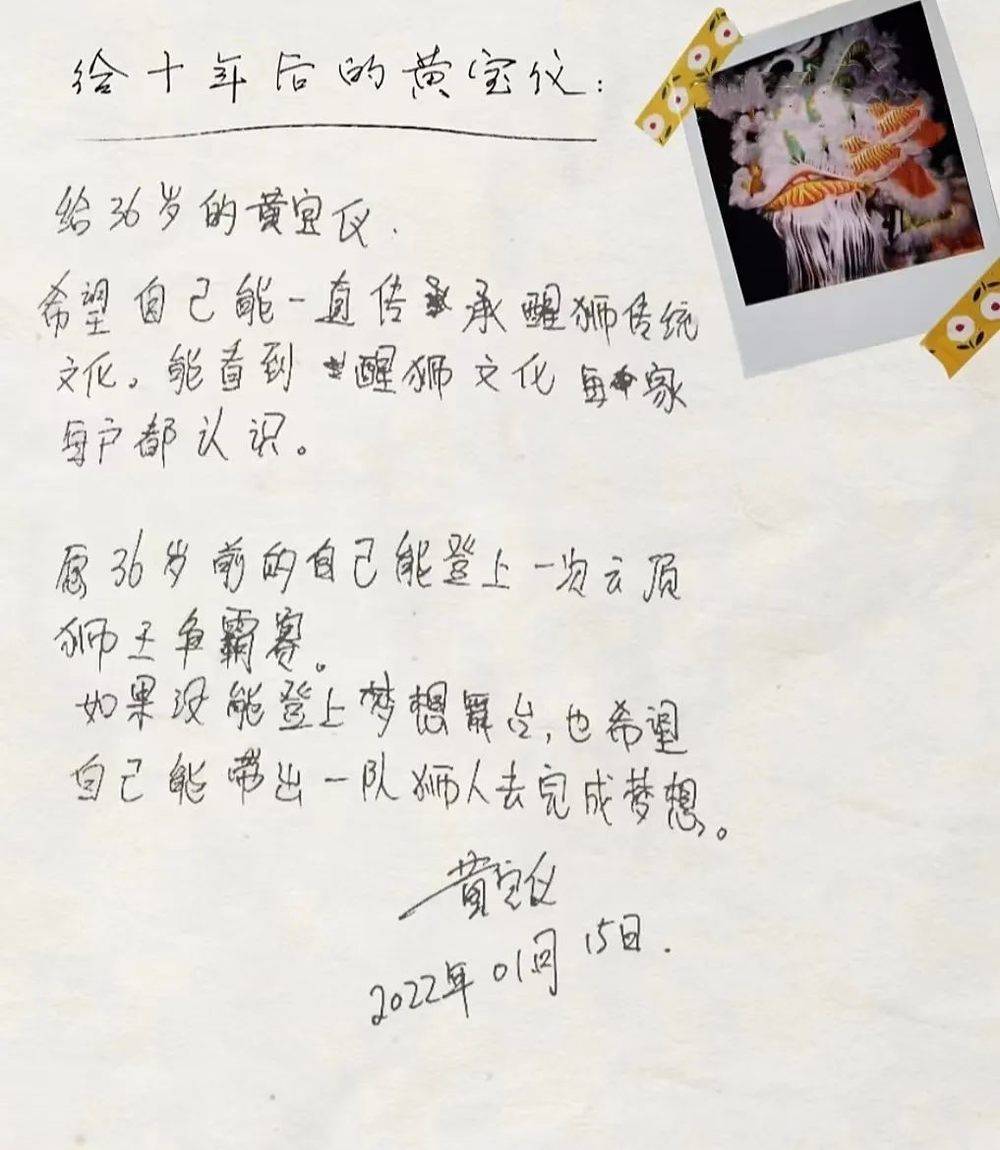 给十年后的黄宝仪：
给36岁的黄宝仪.
希望自己能一直传承醒狮传统
文化。能看到醒狮文化每家
每户都认识。
愿36岁前的自己能登上一次云顶
狮王争霸赛。
如果没能登上梦想舞台,也希望
自己能带出一队狮人去完成梦想。
黄宝仪
2022年01月15日.